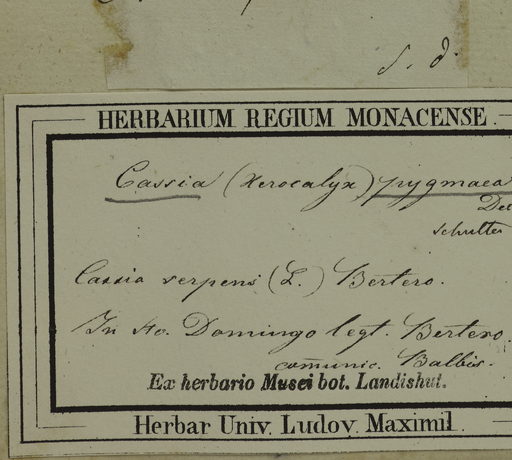 s. d.
HERBARIUM REGIUM MONACENSE.
Cassia (Xerocalyx) pygmaea
Dec
schultes
Cassia serpens (L.) Bertero.
In Sto. Domingo legt. Bertero.
com̄unic. Balbis.
Ex herbario Musei bot. Landishut.
Herbar Univ. Ludov. Maximil.